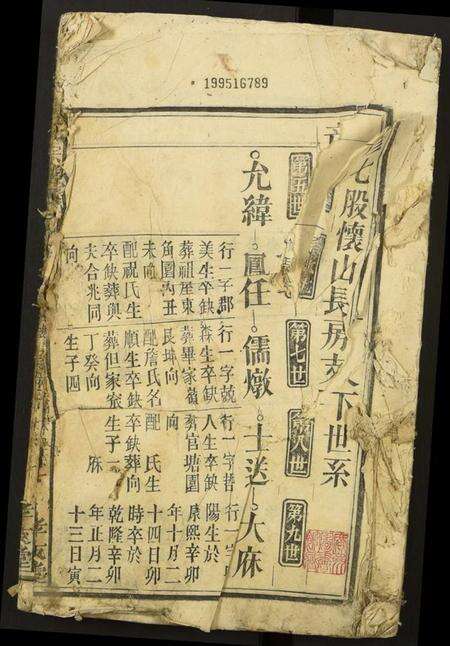 199516789
股懷山長房支下世系
第五世
第七世
第八世
第九世
允緯 鳳任 儒燉 士送 大麻
行一字郡
美生卒缺
葬祖堂東
角園內丑
未向
配祝氏生
卒缺葬與
夫合兆同
向
行一字就
森生卒缺
葬畢家嶺
艮坤向
配詹氏名
順生卒缺
葬但家嶺
丁癸向
生子四
行一字哲
人生卒缺
葬官塘園
向
配 氏生
卒缺葬向
生子二
麻
行一字
陽生於
康熙辛卯
年十月二
十四日卯
時卒於
乾隆辛卯
年正月二
十三日寅